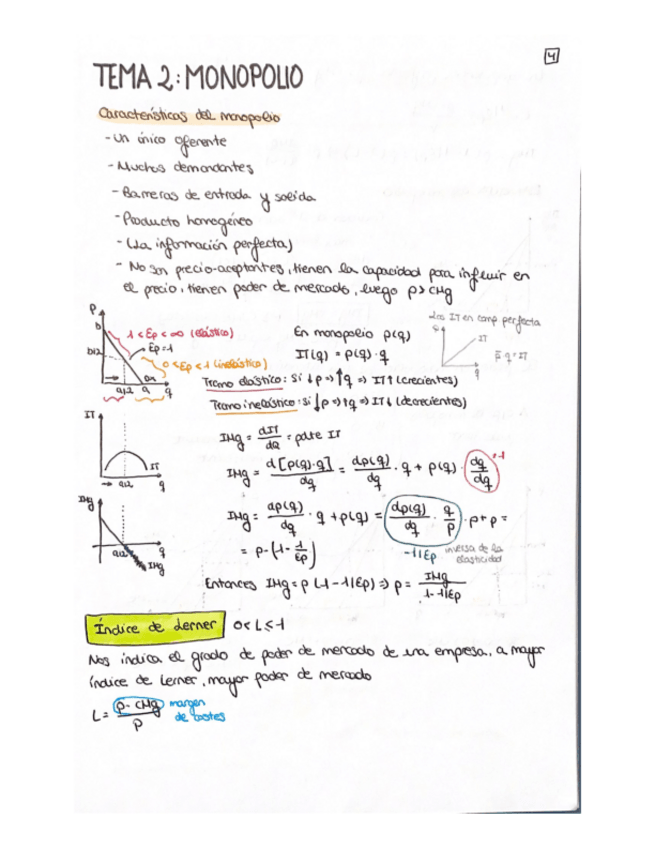 4
TEMA 2: MONOPOLIO
Características del monopolio
- Un único oferente
- Muchos demandantes
- Barreras de entrada y salida
- Producto homogéneo
- (La información perfecta)
- No son precio-aceptantes, tienen la capacidad para influir en
el precio, tienen poder de mercado, luego p > CMg
Los IT en comp perfecta
P
b
1 < Ep < ∞ (elástico)
Ep = 1
b/2
0 < Ep < 1 (inelástico)
a/2 a q
En monopolio p(q)
IT(q) = p(q) · q
IT
q
p̄ · q = IT
Tramo elástico: Si ↓p ⇒ ↑q ⇒ IT↑ (crecientes)
Tramo inelástico: si ↓p ⇒ ↑q ⇒ IT↓ (decrecientes)
IT
IT
a/2 q
IMg = dIT/dQ = pdte IT
IMg = d[p(q)·q]/dq = dp(q)/dq · q + p(q) · dq/dq = 1
IMg
a/2 q
IMg
IMg = dp(q)/dq · q + p(q) = dp(q)/dq · q/p · p + p =
-1/Ep inversa de la elasticidad
= p · (1 - 1/Ep)
Entonces IMg = p (1 - 1/Ep) ⇒ p = IMg/1 - 1/Ep
Índice de Lerner 0 < L ≤ 1
Nos indica el grado de poder de mercado de una empresa, a mayor
índice de Lerner, mayor poder de mercado
L = p - CMg/p margen de costes